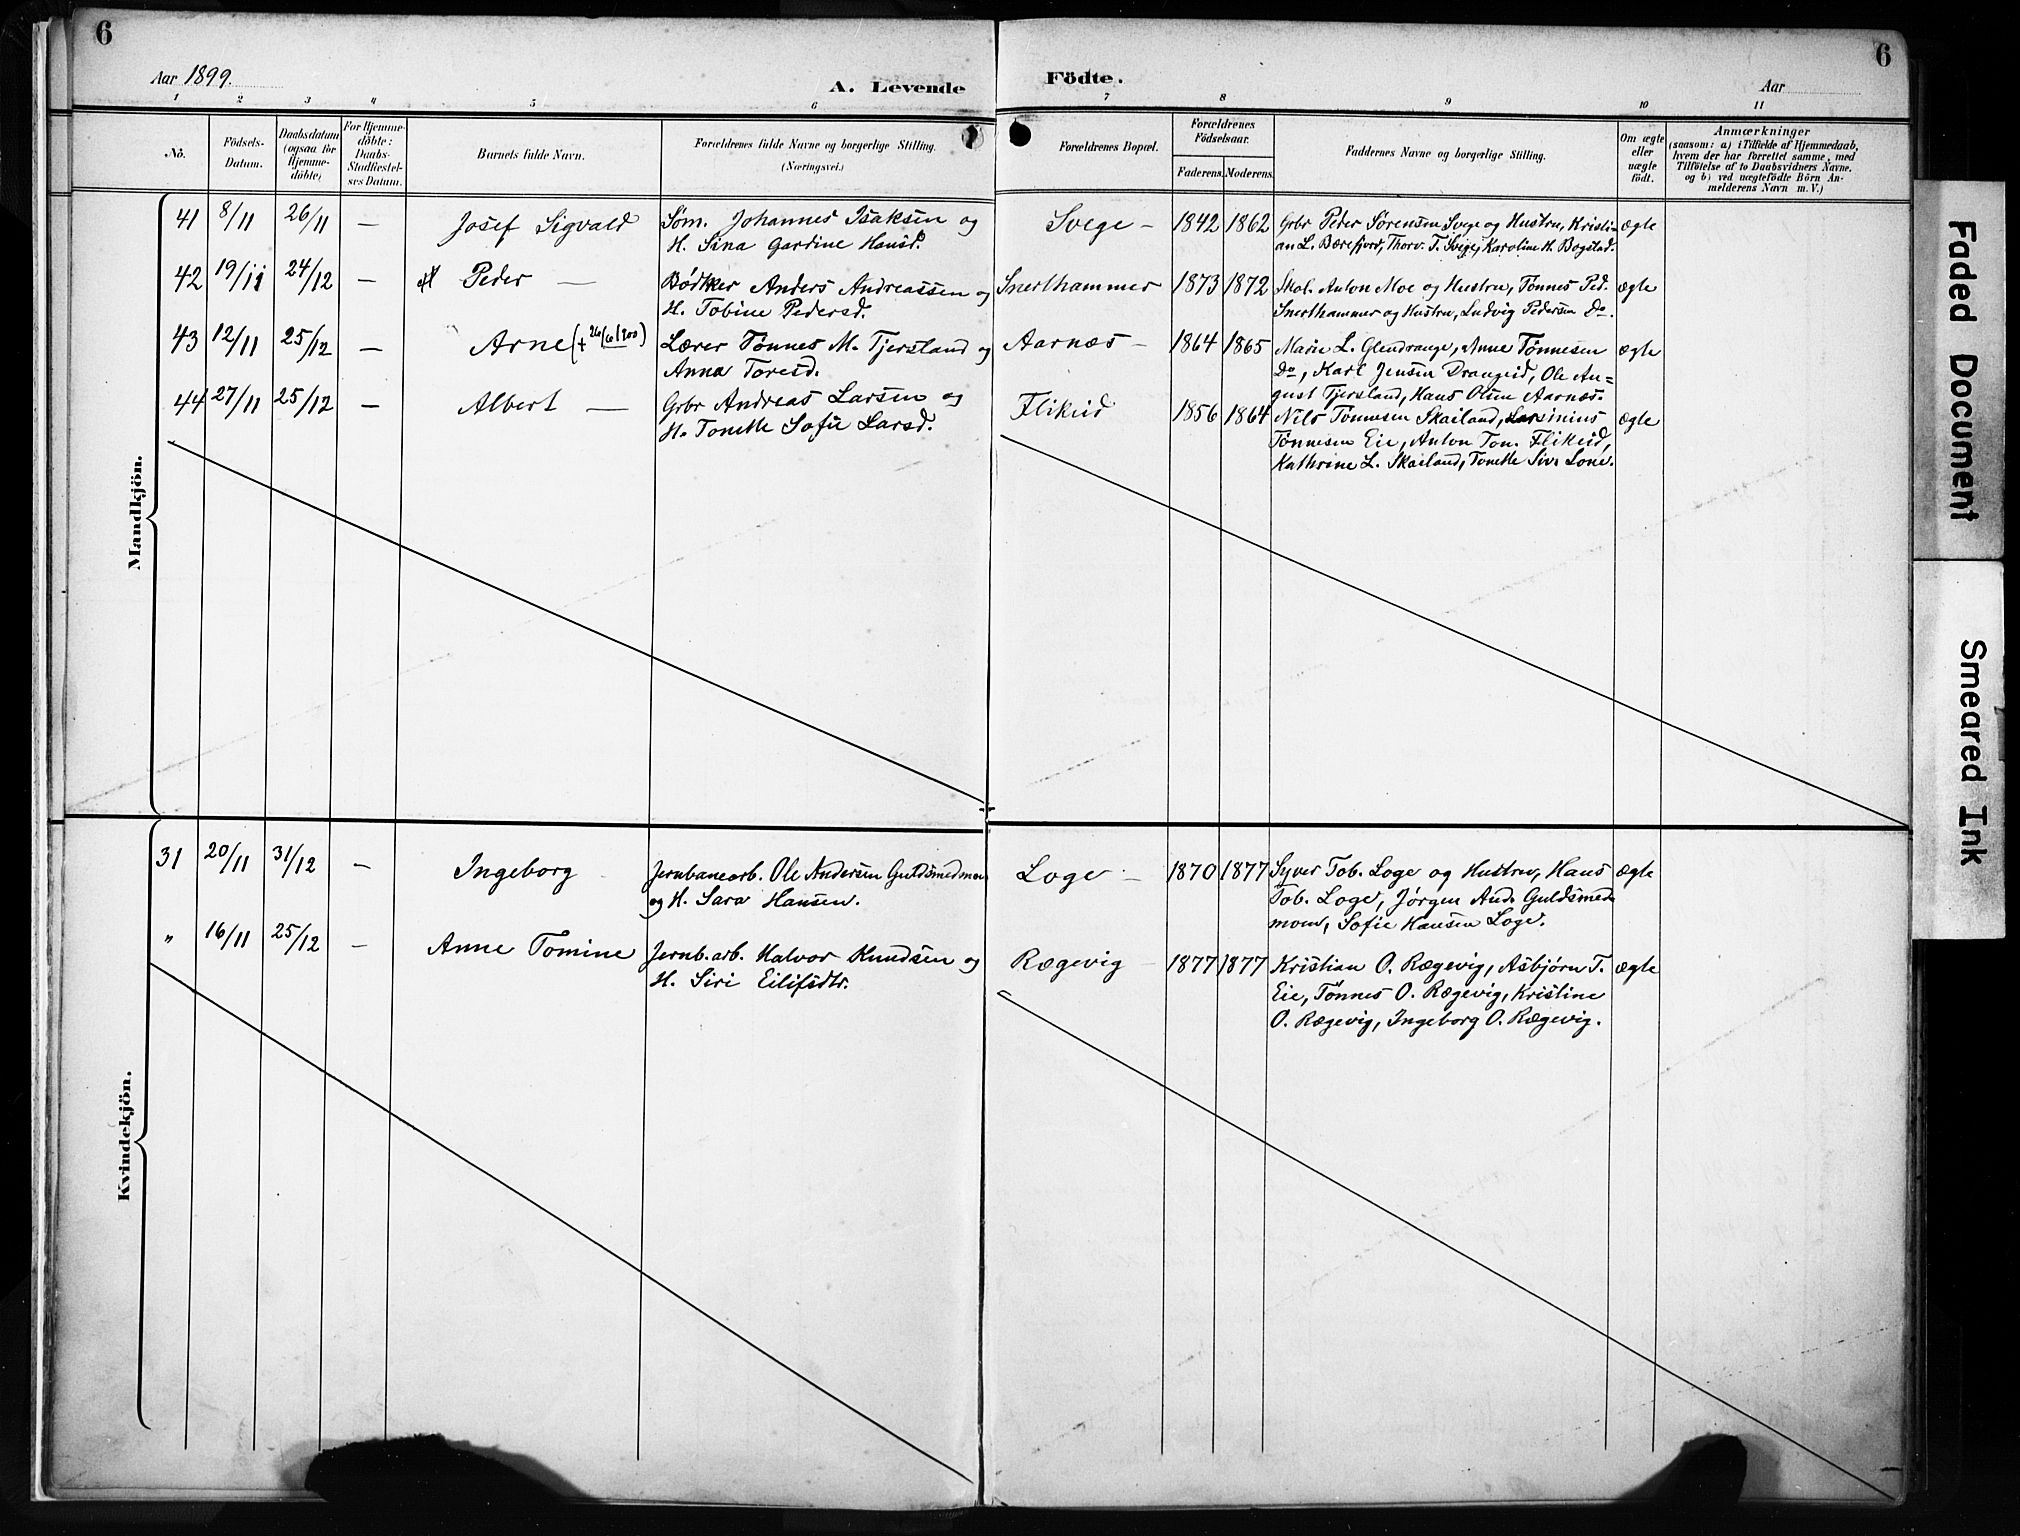 6
6
Aar 1899.
A. Levende
Födte.
Aar
1 2 3 4 5 6 7 8 9 10 11
No.
Födsels-
Datum.
Daabsdatum
(ogsaa for
Hjemme-
döbte)
For Hjemme-
döbte:
Daabs-
Stadfæstel-
ses Datum.
Barnets fulde Navn.
Forældrenes fulde Navne og borgerlige Stilling.
(Næringsvei.)
Forældrenes Bopæl.
Forældrenes
Födselsaar.
Faderens. Moderens.
Faddernes Navne og borgerlige Stilling.
Om ægte
eller
uægte
födt.
Anmærkninger
(saasom: a) i Tilfælde af Hjemmedaab,
hvem der har forrettet samme, med
Tilföielse af to Daabsvidners Navne.
og b) ved uægtefödte Börn An-
melderens Navn m. V.)
Mandkjön.
41 8/11 26/11 — Josef Sigvald Søm. Johannes Isaksen og Svege — 1842 1862 Grbr Peder Sørensen Svege og Hustru, Kristi- ægte
H. Sina Gardine Hansd. an L. Bærefjord, Thorv. T. Svege, Karoline H. Bogstad.
42 19/11 24/12 — Peder — Bødker Anders Andreassen og Snerthammer 1873 1872 Skol. Anton Moe og Hustru, Tønnes Ped. ægte
H. Tobine Pedersd. Snerthammer og Hustru, Ludvig Pedersen Do.
43 12/11 25/12 — Arne (+ 26/6/900) Lærer Tønnes M. Tjersland og Aarnæs — 1864 1865 Marie L. Glendrange, Anne Tønnesen ægte
Anna Toresd. Do, Karl Jensen Drangeid, Ole Au=
gust Tjersland, Hans Olsen Aarnæs.
44 27/11 25/12 — Albert — Grbr Andreas Larsen og Flikeid 1856 1864 Nils Tønnesen Skailand, Larsinius ægte
H. Tonette Sofie Larsd. Tønnesen Eie, Anton Ton. Flikeid,
Kathrine L. Skailand, Tonette Siv. Lone.
Kvindekjön.
31 20/11 31/12 — Ingeborg Jernbanearb. Ole Andersen Guldsmedmoen Loge — 1870 1877 Syver Tob. Loge og Hustru, Hans ægte
og H. Sara Hansen. Tob. Loge, Jørgen And. Guldsmed
moen, Sofie Hansen Loge.
" 16/11 25/12 — Anne Tomine Jernb.arb. Halvor Knudsen og Rægevig — 1877 1877 Kristian O. Rægevig, Asbjørn T. ægte
H. Siri Eilifsdtr. Eie, Tønnes O. Rægevig, Kristine
O. Rægevig, Ingeborg O. Rægevig.
Faded Document
Smeared Ink